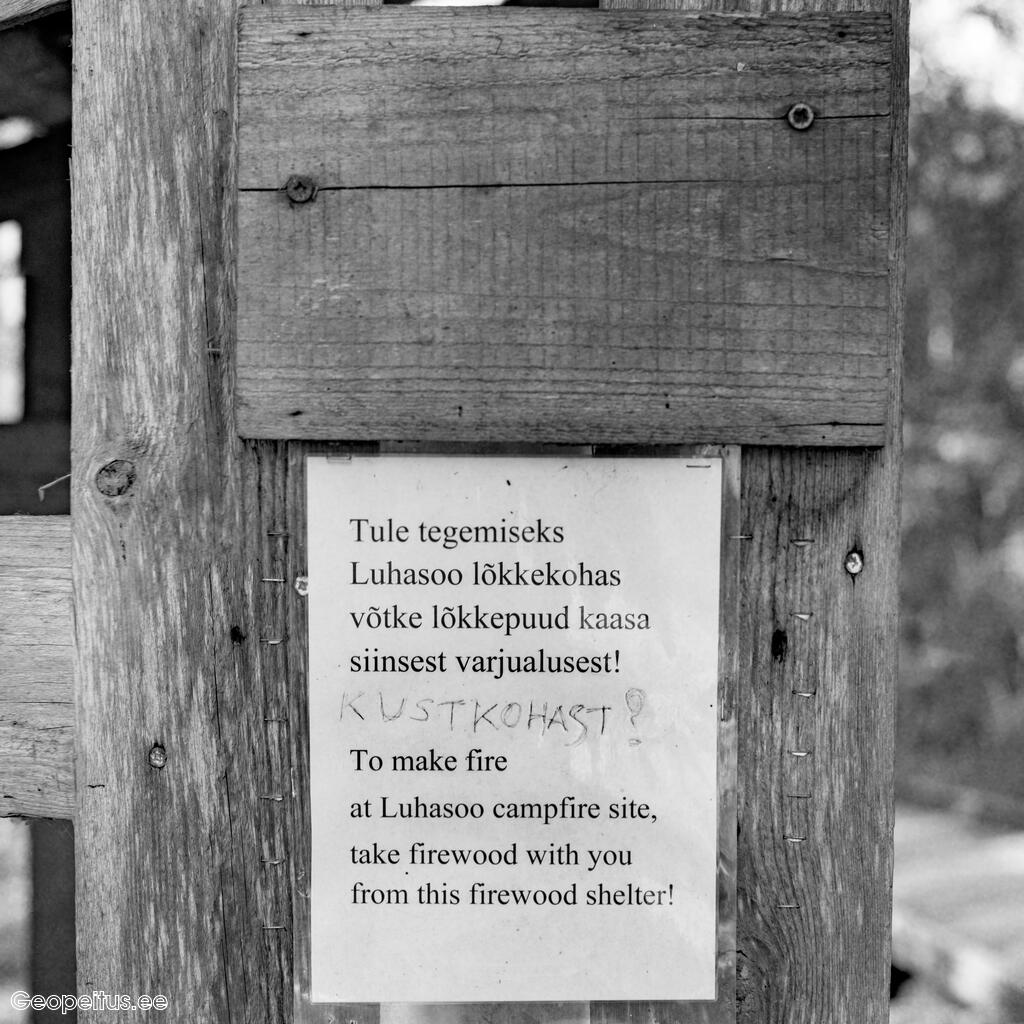 Tule tegemiseks
Luhasoo lõkkekohas
võtke lõkkepuud kaasa
siinsest varjualusest!
KUSTKOHAST?
To make fire
at Luhasoo campfire site,
take firewood with you
from this firewood shelter!
Geopeitus.ee